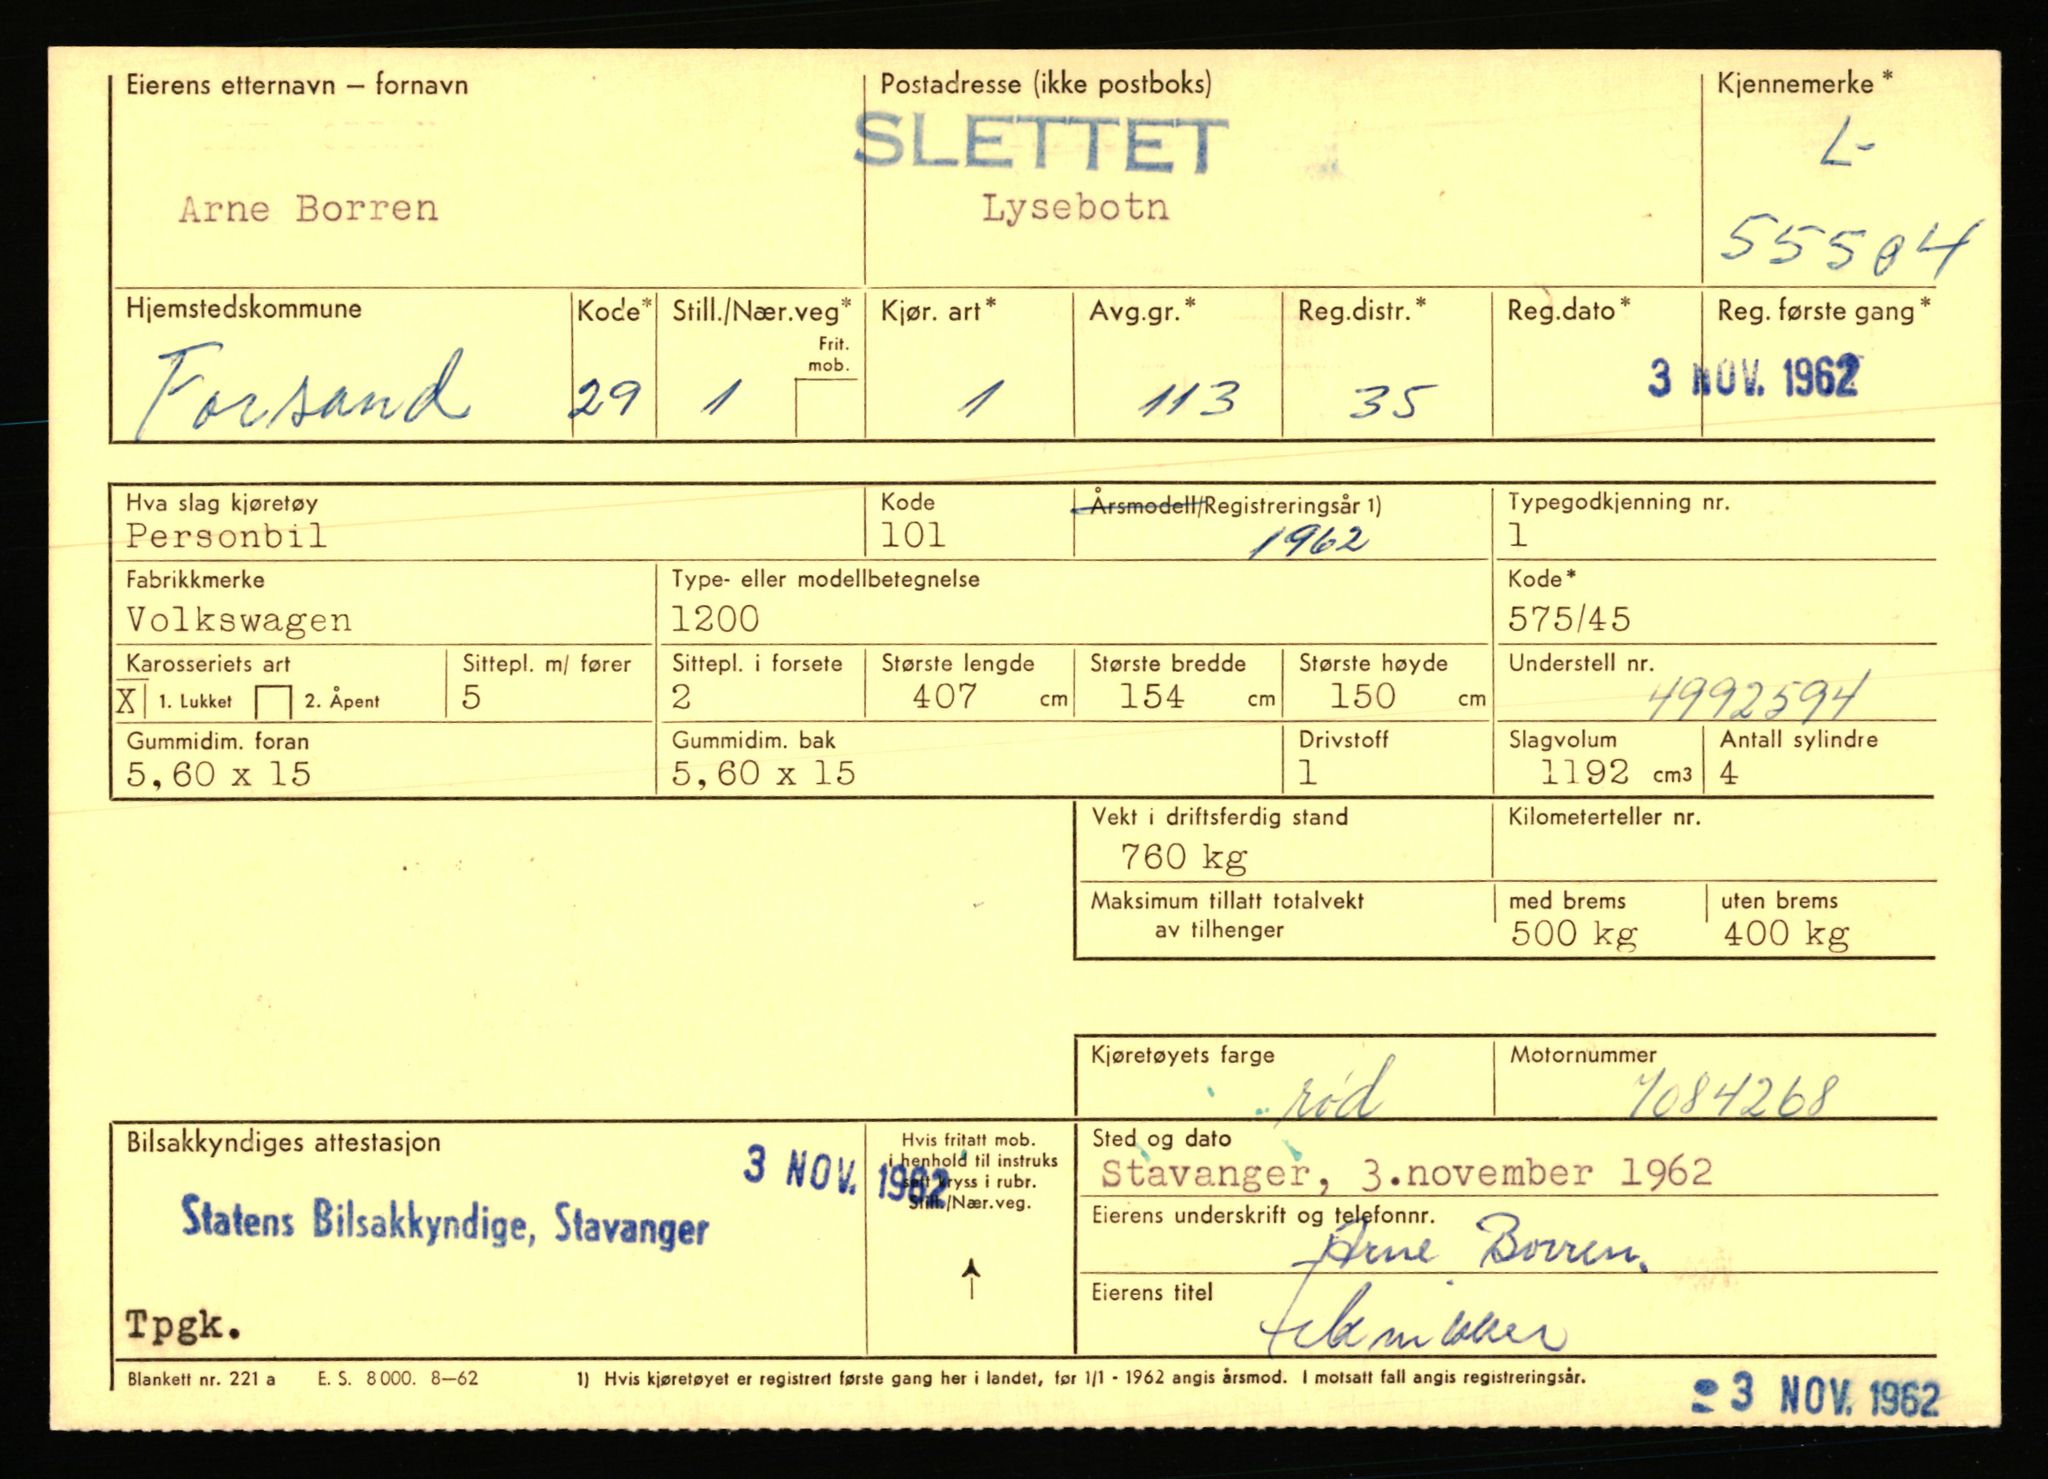 Eierens etternavn – fornavn
Postadresse (ikke postboks)
Kjennemerke*
SLETTET
L-
Arne Borren
Lysebotn
55504
Hjemstedskommune
Kode*
Still./Nær.veg*
Kjør. art*
Avg.gr.*
Reg.distr.*
Reg.dato*
Reg. første gang*
Frit.
mob.
Forsand
29
1
1
113
35
3 NOV. 1962
Hva slag kjøretøy
Kode
Årsmodell/Registreringsår 1)
Typegodkjenning nr.
Personbil
101
1962
1
Fabrikkmerke
Type- eller modellbetegnelse
Kode*
Volkswagen
1200
575/45
Karosseriets art
Sittepl. m/ fører
Sittepl. i forsete
Største lengde
Største bredde
Største høyde
Understell nr.
X 1. Lukket 2. Åpent
5
2
407 cm
154 cm
150 cm
4992594
Gummidim. foran
Gummidim. bak
Drivstoff
Slagvolum
Antall sylindre
5,60 x 15
5,60 x 15
1
1192 cm3
4
Vekt i driftsferdig stand
Kilometerteller nr.
760 kg
Maksimum tillatt totalvekt
av tilhenger
med brems
uten brems
500 kg
400 kg
Kjøretøyets farge
Motornummer
rød
7084268
Bilsakkyndiges attestasjon
3 NOV. 1962
Hvis fritatt mob.
i henhold til instruks
sett kryss i rubr.
Still./Nær.veg.
Sted og dato
Stavanger, 3.november 1962
Statens Bilsakkyndige, Stavanger
Eierens underskrift og telefonnr.
Arne Borren.
Eierens titel
Tpgk.
Blankett nr. 221 a E. S. 8000. 8–62
1) Hvis kjøretøyet er registrert første gang her i landet, før 1/1 - 1962 angis årsmod. I motsatt fall angis registreringsår.
3 NOV. 1962